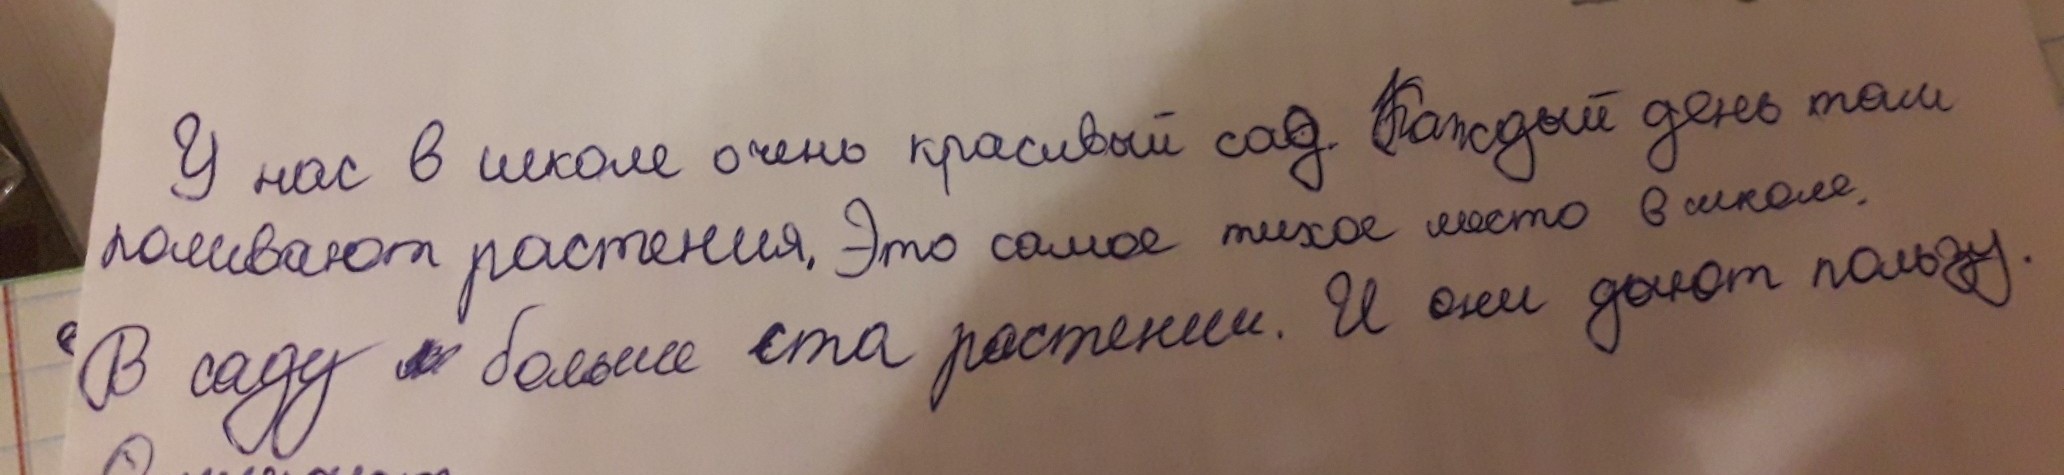 У нас в школе очень красивый сад. Каждый день там
поливают растения. Это самое тихое место в школе.
В саду больше ста растении. И они дают пользу.